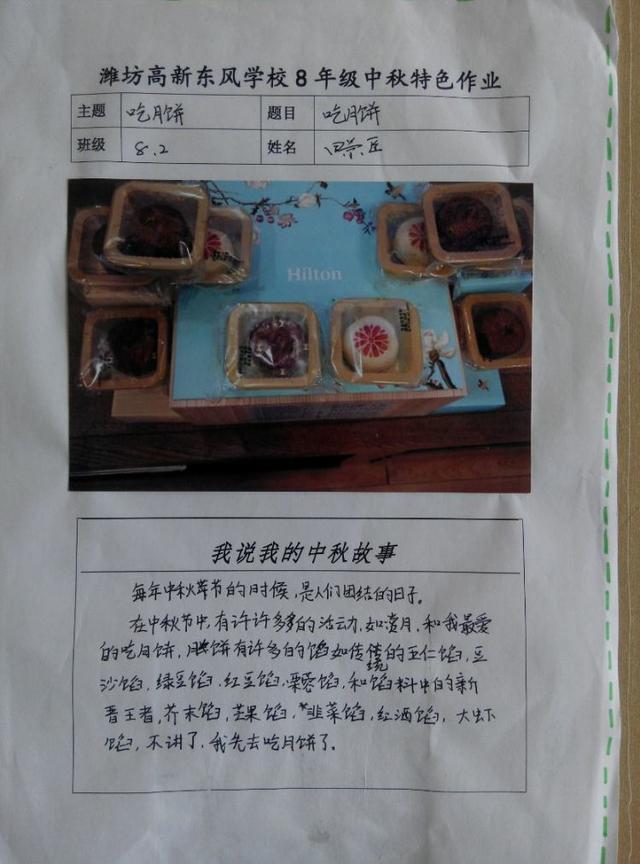 潍坊高新东风学校8年级中秋特色作业
主题 吃月饼 题目 吃月饼
班级 8.2 姓名
Hilton
我说我的中秋故事
每年中秋节的时候,是人们团结的日子。
在中秋节中,有许许多多的活动,如赏月,和我最爱
的吃月饼,月饼有许多的馅如传统的五仁馅,豆
沙馅,绿豆馅,红豆馅,栗蓉馅,和馅料中的新
晋王者,芥末馅,芒果馅,韭菜馅,红酒馅,大虾
馅,不讲了,我先去吃月饼了。